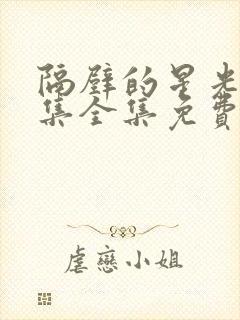 隔壁的星光
集全集免費
虐戀小姐